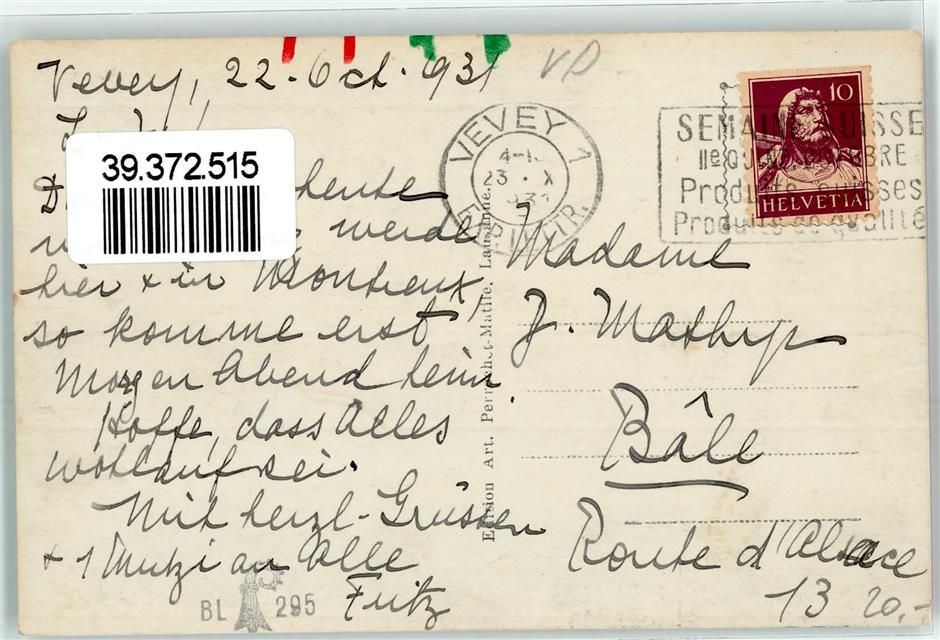 Vevey, 22. Oct. 931
VD
39.372.515
heute
werde
hier + in Montreux,
so komme erst
Morgen Abend heim
Hoffe, dass Alles
wohlauf sei.
Mit herzl. Grüssen
+ 1 Muntzi an Alle
Fritz
BL 295
Edition Art. Perrochet-Matile, Lausanne.
VEVEY 1
23. X
SEMAINE SUISSE
Produits suisses
Produits de qualité
10
HELVETIA
Madame
J. Mathys
Bâle
Route d'Alsace
13
20.-